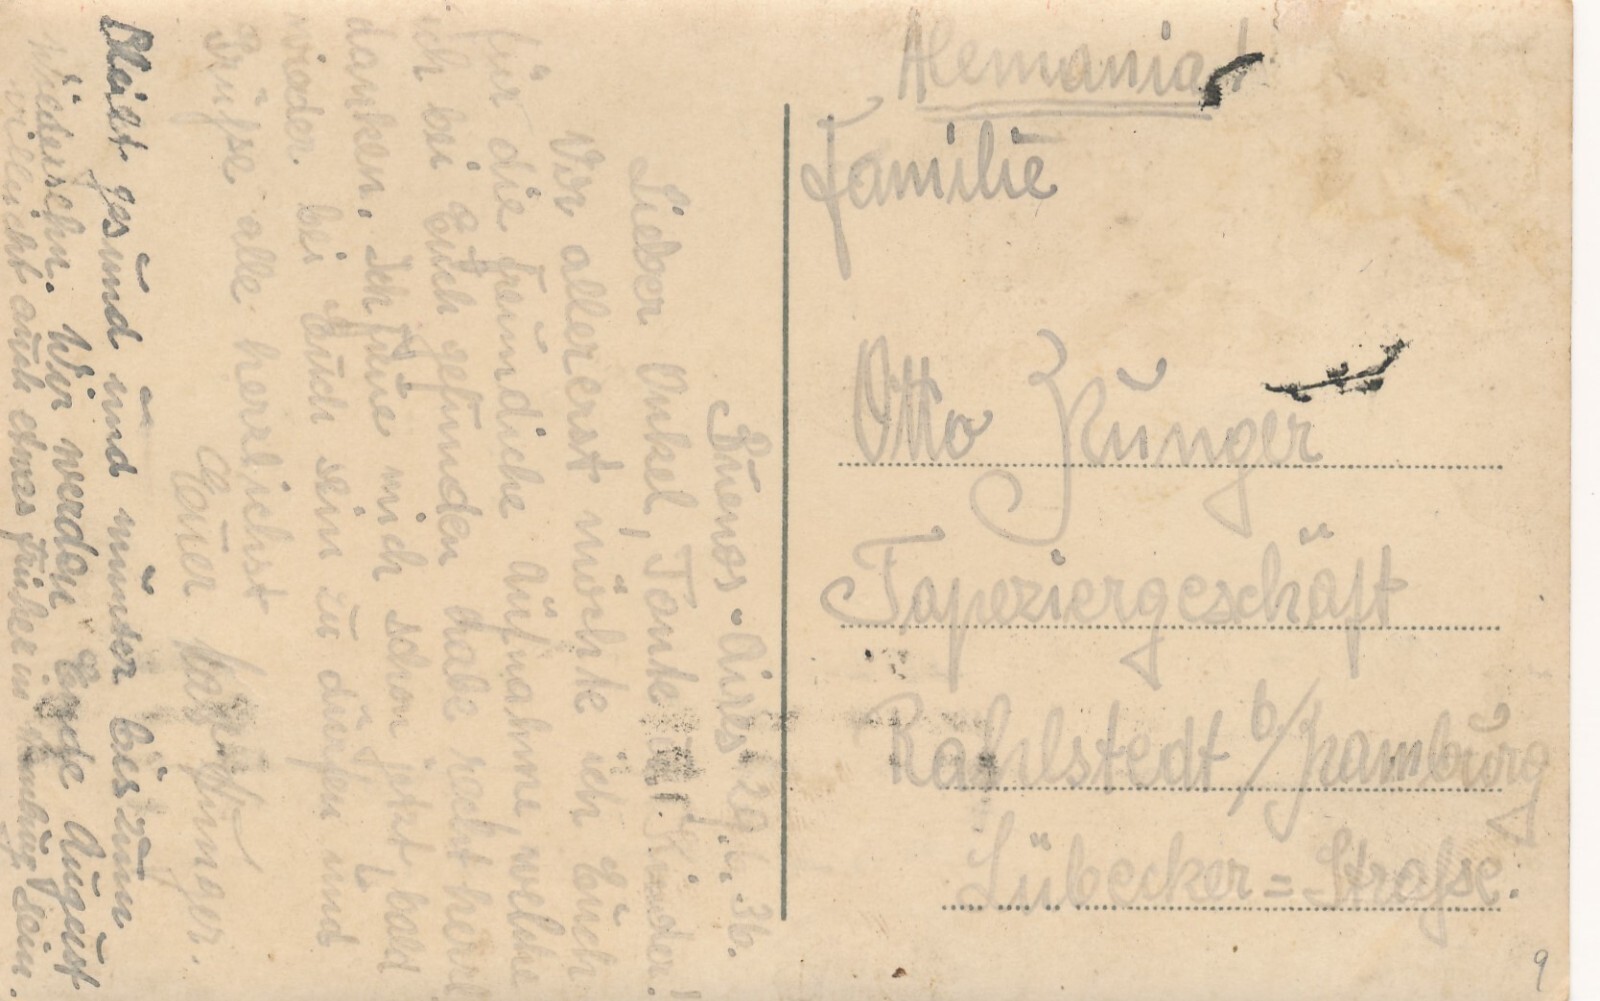 Buenos-Aires 29.6.36.
Lieber Onkel, Tante und Kinder!
Vor allererst möchte ich Euch
für die freundliche Aufnahme, welche
ich bei Euch gefunden habe recht herzl.
danken. Ich freue mich schon jetzt, bald
wieder bei Euch sein zu dürfen und
Grüße alle herzlichst
Euer Junger.
Bleibt gesund und munter bis zum
Wiedersehn. Wir werden Ende August
vielleicht auch etwas früher in Hamburg sein.
Alemania!
Familie
Otto Zünger
Tapeziergeschäft
Rahlstedt b/Hamburg
Lübecker=Straße.
9